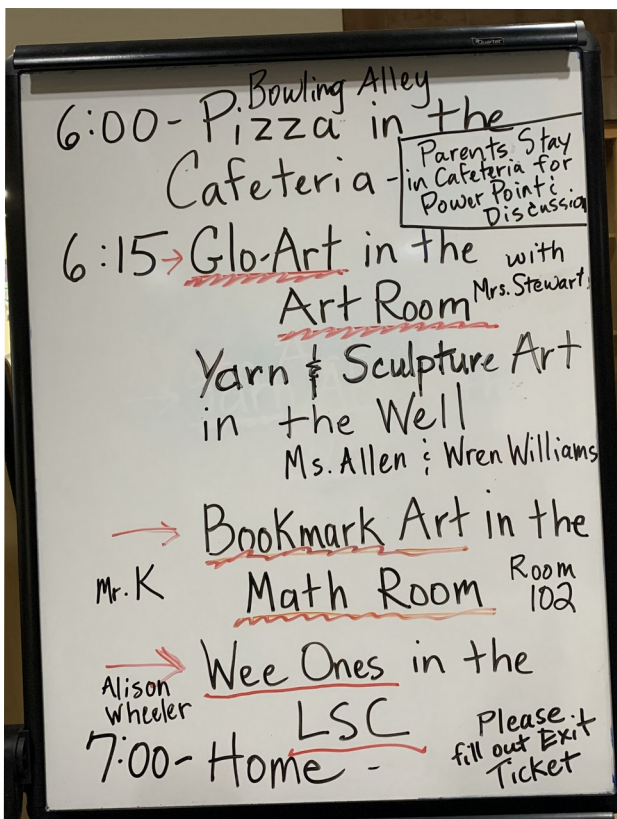 Quartet
Bowling Alley
6:00 - Pizza in the
Cafeteria -
Parents Stay
in Cafeteria for
Power Point &
Discussion
6:15 → Glo-Art in the
with
Mrs. Stewart
Art Room
Yarn & Sculpture Art
in the Well
Ms. Allen & Wren Williams
→ Bookmark Art in the
Mr. K Math Room
Room
102
→ Wee Ones in the
Alison
Wheeler
LSC
7:00 - Home -
Please
fill out Exit
Ticket